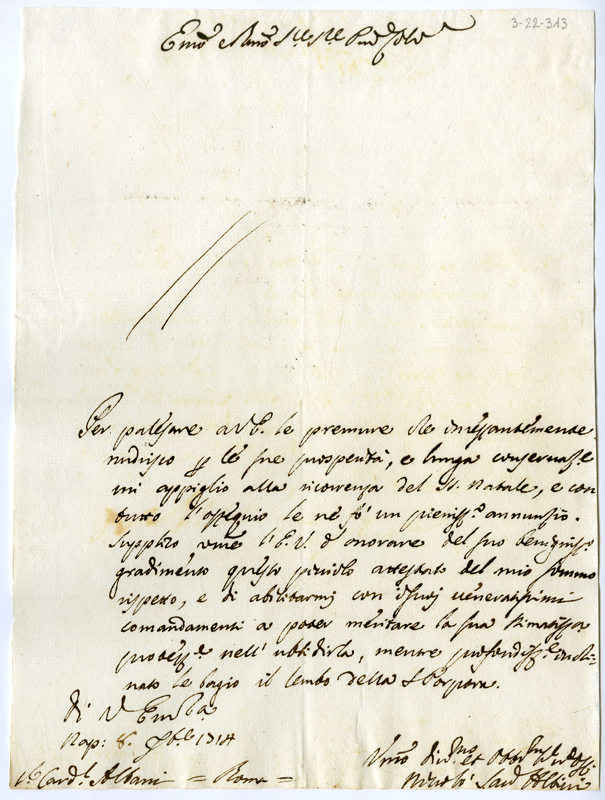 3-22-313
Emo e Rmo Sre Sre Pne Colmo
Per palesare a V E. le premure che incessantemente
nudrisco p le sue prosperità, e lunga conservaz.e
mi appiglio alla ricorrenza del S. Natale, e con
tutto l'ossequio le ne fò un pieniss.o annunzio.
Supplico l'E. V. d'onorare del suo benigniss.o
gradimento questo piccolo attestato del mio sommo
rispetto, e di abilitarmi con i suoi veneratissimi
comandamenti a poter meritare la sua stimatissa
protez.e nell'ubidirla, mentre profondiss.e incli-
nato le bagio il lembo della S Porpora.
Di V Emza
Nap: 8. Xbre 1714
Sr Card.l Albani = Roma =
Umo div.mo et obb.mo
Nicolò